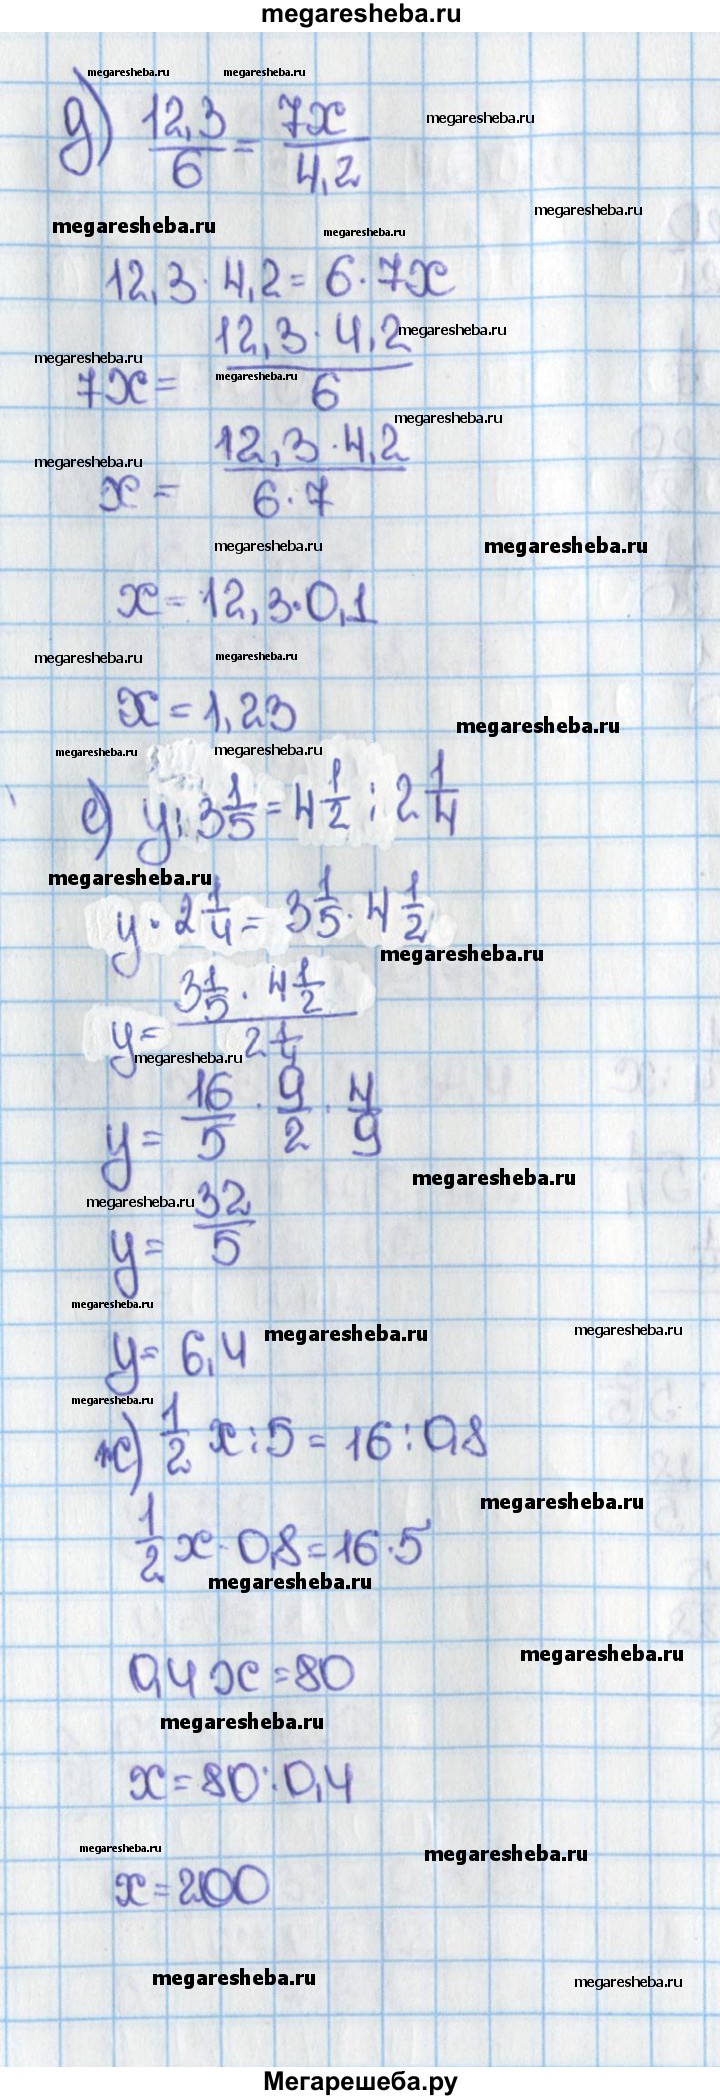 megaresheba.ru
megaresheba.ru megaresheba.ru
д) 12,3/6 = 7x/4,2
megaresheba.ru
megaresheba.ru
megaresheba.ru megaresheba.ru
12,3 · 4,2 = 6 · 7x
megaresheba.ru
megaresheba.ru
7x = 12,3 · 4,2/6
megaresheba.ru
megaresheba.ru
megaresheba.ru
x = 12,3 · 4,2/6 · 7
megaresheba.ru megaresheba.ru
x = 12,3 · 0,1
megaresheba.ru megaresheba.ru
x = 1,23
megaresheba.ru
megaresheba.ru megaresheba.ru
е) y : 3 1/5 = 4 1/2 : 2 1/4
megaresheba.ru
y · 2 1/4 = 3 1/5 · 4 1/2
megaresheba.ru
y = 3 1/5 · 4 1/2/2 1/4
megaresheba.ru
y = 16/5 · 9/2 · 4/9
megaresheba.ru
megaresheba.ru
y = 32/5
megaresheba.ru
megaresheba.ru megaresheba.ru
y = 6,4
megaresheba.ru
ж) 1/2 x : 5 = 16 : 0,8
megaresheba.ru
1/2 x · 0,8 = 16 · 5
megaresheba.ru
megaresheba.ru
0,4x = 80
megaresheba.ru
x = 80 : 0,4
megaresheba.ru megaresheba.ru
x = 200
megaresheba.ru megaresheba.ru
Мегарешеба.ру